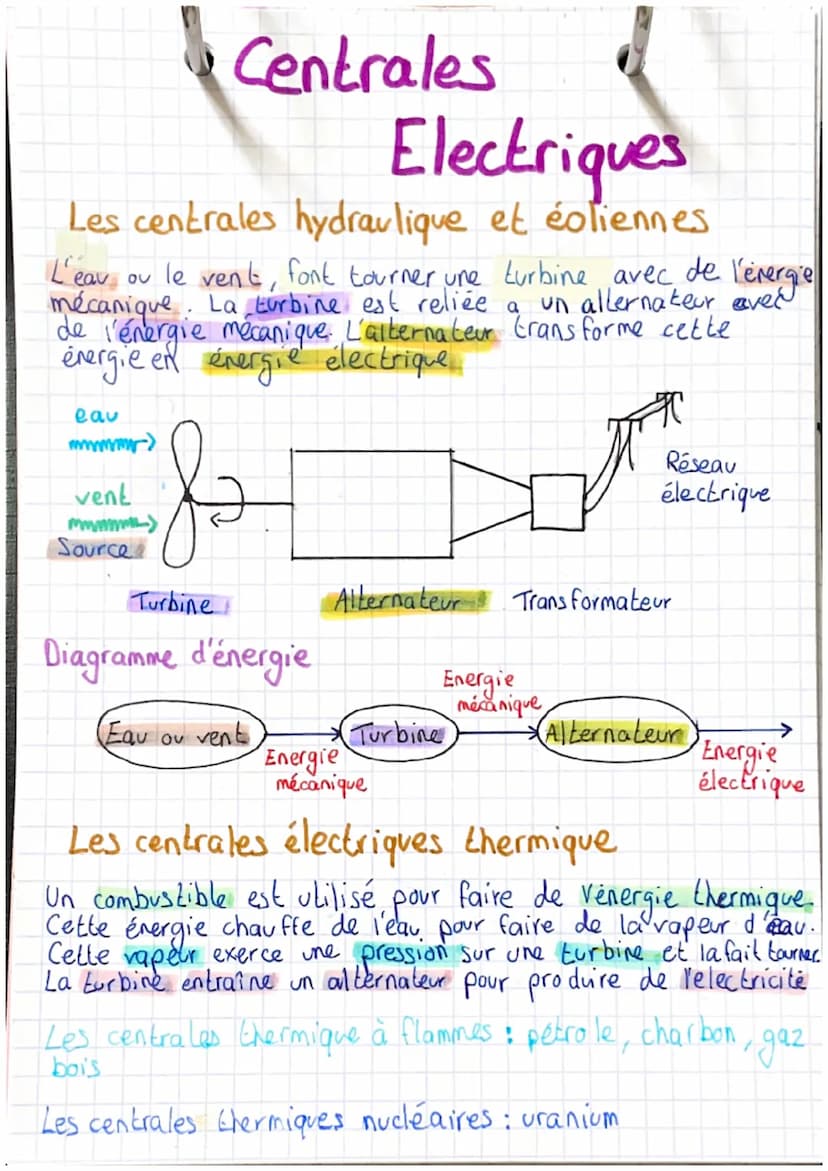 Centrales
Electriques
Les centrales hydraulique et éoliennes
L'eau, ou le vent, font tourner une turbine avec de l'énergie
mécanique. La turbine est reliée a un alternateur avec
de l'énergie mécanique. L'alternateur transforme cette
énergie en énergie électrique
eau
vent
Source
Réseau
électrique
Turbine
Alternateur
Transformateur
Diagramme d'énergie
Energie
mécanique
Eau ou vent
Turbine
Alternateur
Energie
mécanique
Energie
électrique
Les centrales électriques thermique
Un combustible est utilisé pour faire de l'énergie thermique.
Cette énergie chauffe de l'eau pour faire de la vapeur d'eau.
Cette vapeur exerce une pression sur une turbine et la fait tourner
La turbine entraîne un alternateur pour produire de l'electricité
Les centrales thermique à flammes : pétrole, charbon, gaz
bois
Les centrales thermiques nucléaires : uranium